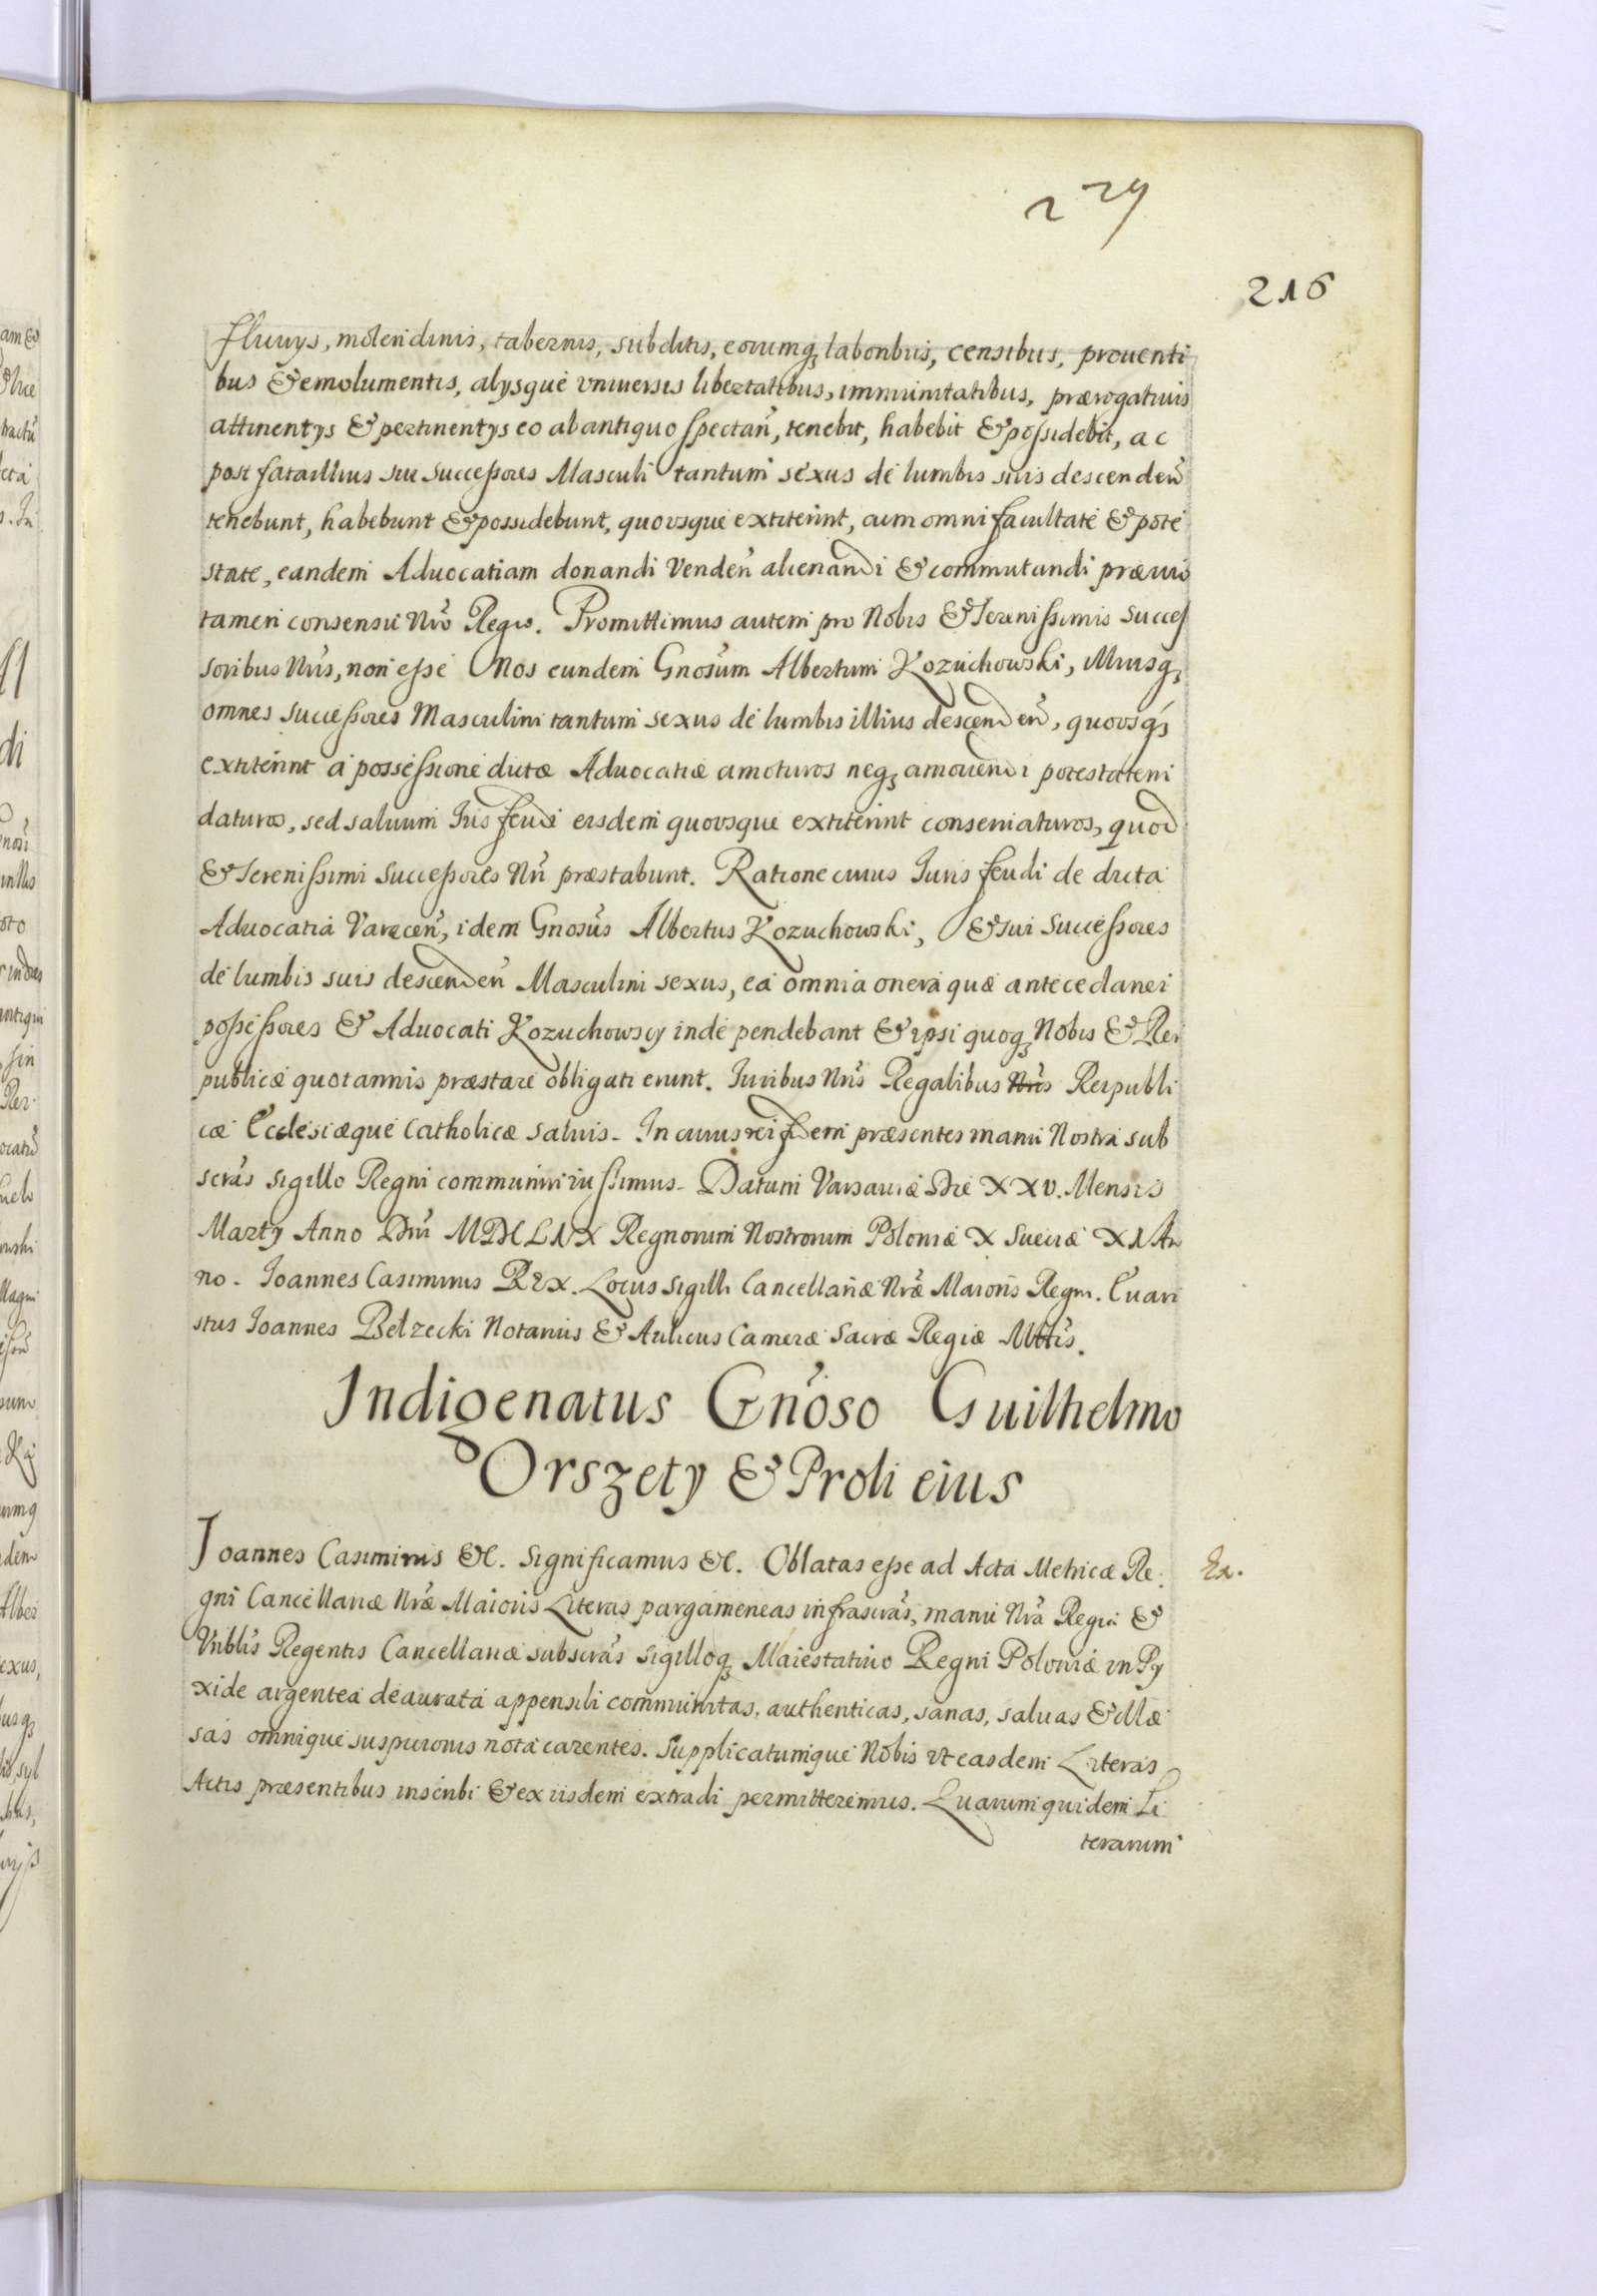 229
216
fluvys, molendinis, tabernis, subditis, eorumq3 laboribus, censibus, proventi
bus & emolumentis, alysque universis libertatibus, immunitatibus, prærogativis
attinentys & pertinentys eo ab antiquo spectan̄, tenebit, habebit & possidebit, ac
post fata illius sui successores Masculi tantum sexus de lumbis suis descenden̄
tenebunt, habebunt & possidebunt, quousque extiterint, cum omni facultate & pote
state, eandem Advocatiam donandi Venden̄ alienandi & commutandi prævio
tamen consensu Nrō Regio. Promittimus autem pro Nobis & Serenissimis Succes
soribus Nr̄is, non esse Nos eundem Gnosūm Albertum Kozuchowski, illiusq3
omnes successores Masculini tantum sexus de lumbis illius descenden̄, quousq3
extiterint a possessione dictæ Advocatiæ amoturos neq3 amovendi potestatem
daturos, sed salvum Ius feudi eisdem quousque extiterint conservaturos, quod
& Serenissimi Successores Nr̄i præstabunt. Ratione cuius Iuris feudi de dicta
Advocatia Varecen̄, idem Gnosūs Albertus Kozuchowski, & sui Successores
de lumbis suis descenden̄ Masculini sexus, ea omnia onera quæ antecedanei
possessores & Advocati Kozuchowscy inde pendebant & ipsi quoq3 Nobis & Rei
publicæ quotannis præstare obligati erunt. Iuribus Nr̄is Regalibus Nr̄is Reipubli
cæ Ecclesiæque Catholicæ salvis. In cuius rei fidem præsentes manu Nostra sub
scrās sigillo Regni communiri iussimus. Datum Varsaviæ Die XXV. Mensis
Marty Anno Dn̄i MDCLIX Regnorum Nostrorum Poloniæ X Sueciæ XI An
no. Ioannes Casimirus REX. Locus Sigilli Cancellariæ Nr̄æ Maioris Regni. Evari
stus Ioannes Bełzecki Notarius & Aulicus Cameræ Sacræ Regiæ Mttīs.
Indigenatus Gn̄oso Guilhelmo
Orszety & Proli eius
Ioannes Casimirus &c. Significamus &c. Oblatas esse ad Acta Metricæ Re:
Ex.
gni Cancellariæ Nr̄æ Maioris Literas pargameneas infrascrās, manu Nr̄a Regia &
Vnblīs Regentis Cancellariæ subscrās Sigilloq3 Maiestativo Regni Poloniæ in Py
xide argentea deaurata appensili communitas, authenticas, sanas, salvas & illæ
sas omnique suspicionis nota carentes. Supplicatumque Nobis vt easdem Literas
Actis præsentibus inscribi & ex iisdem extradi permitteremus. Quarum quidem Li
terarum